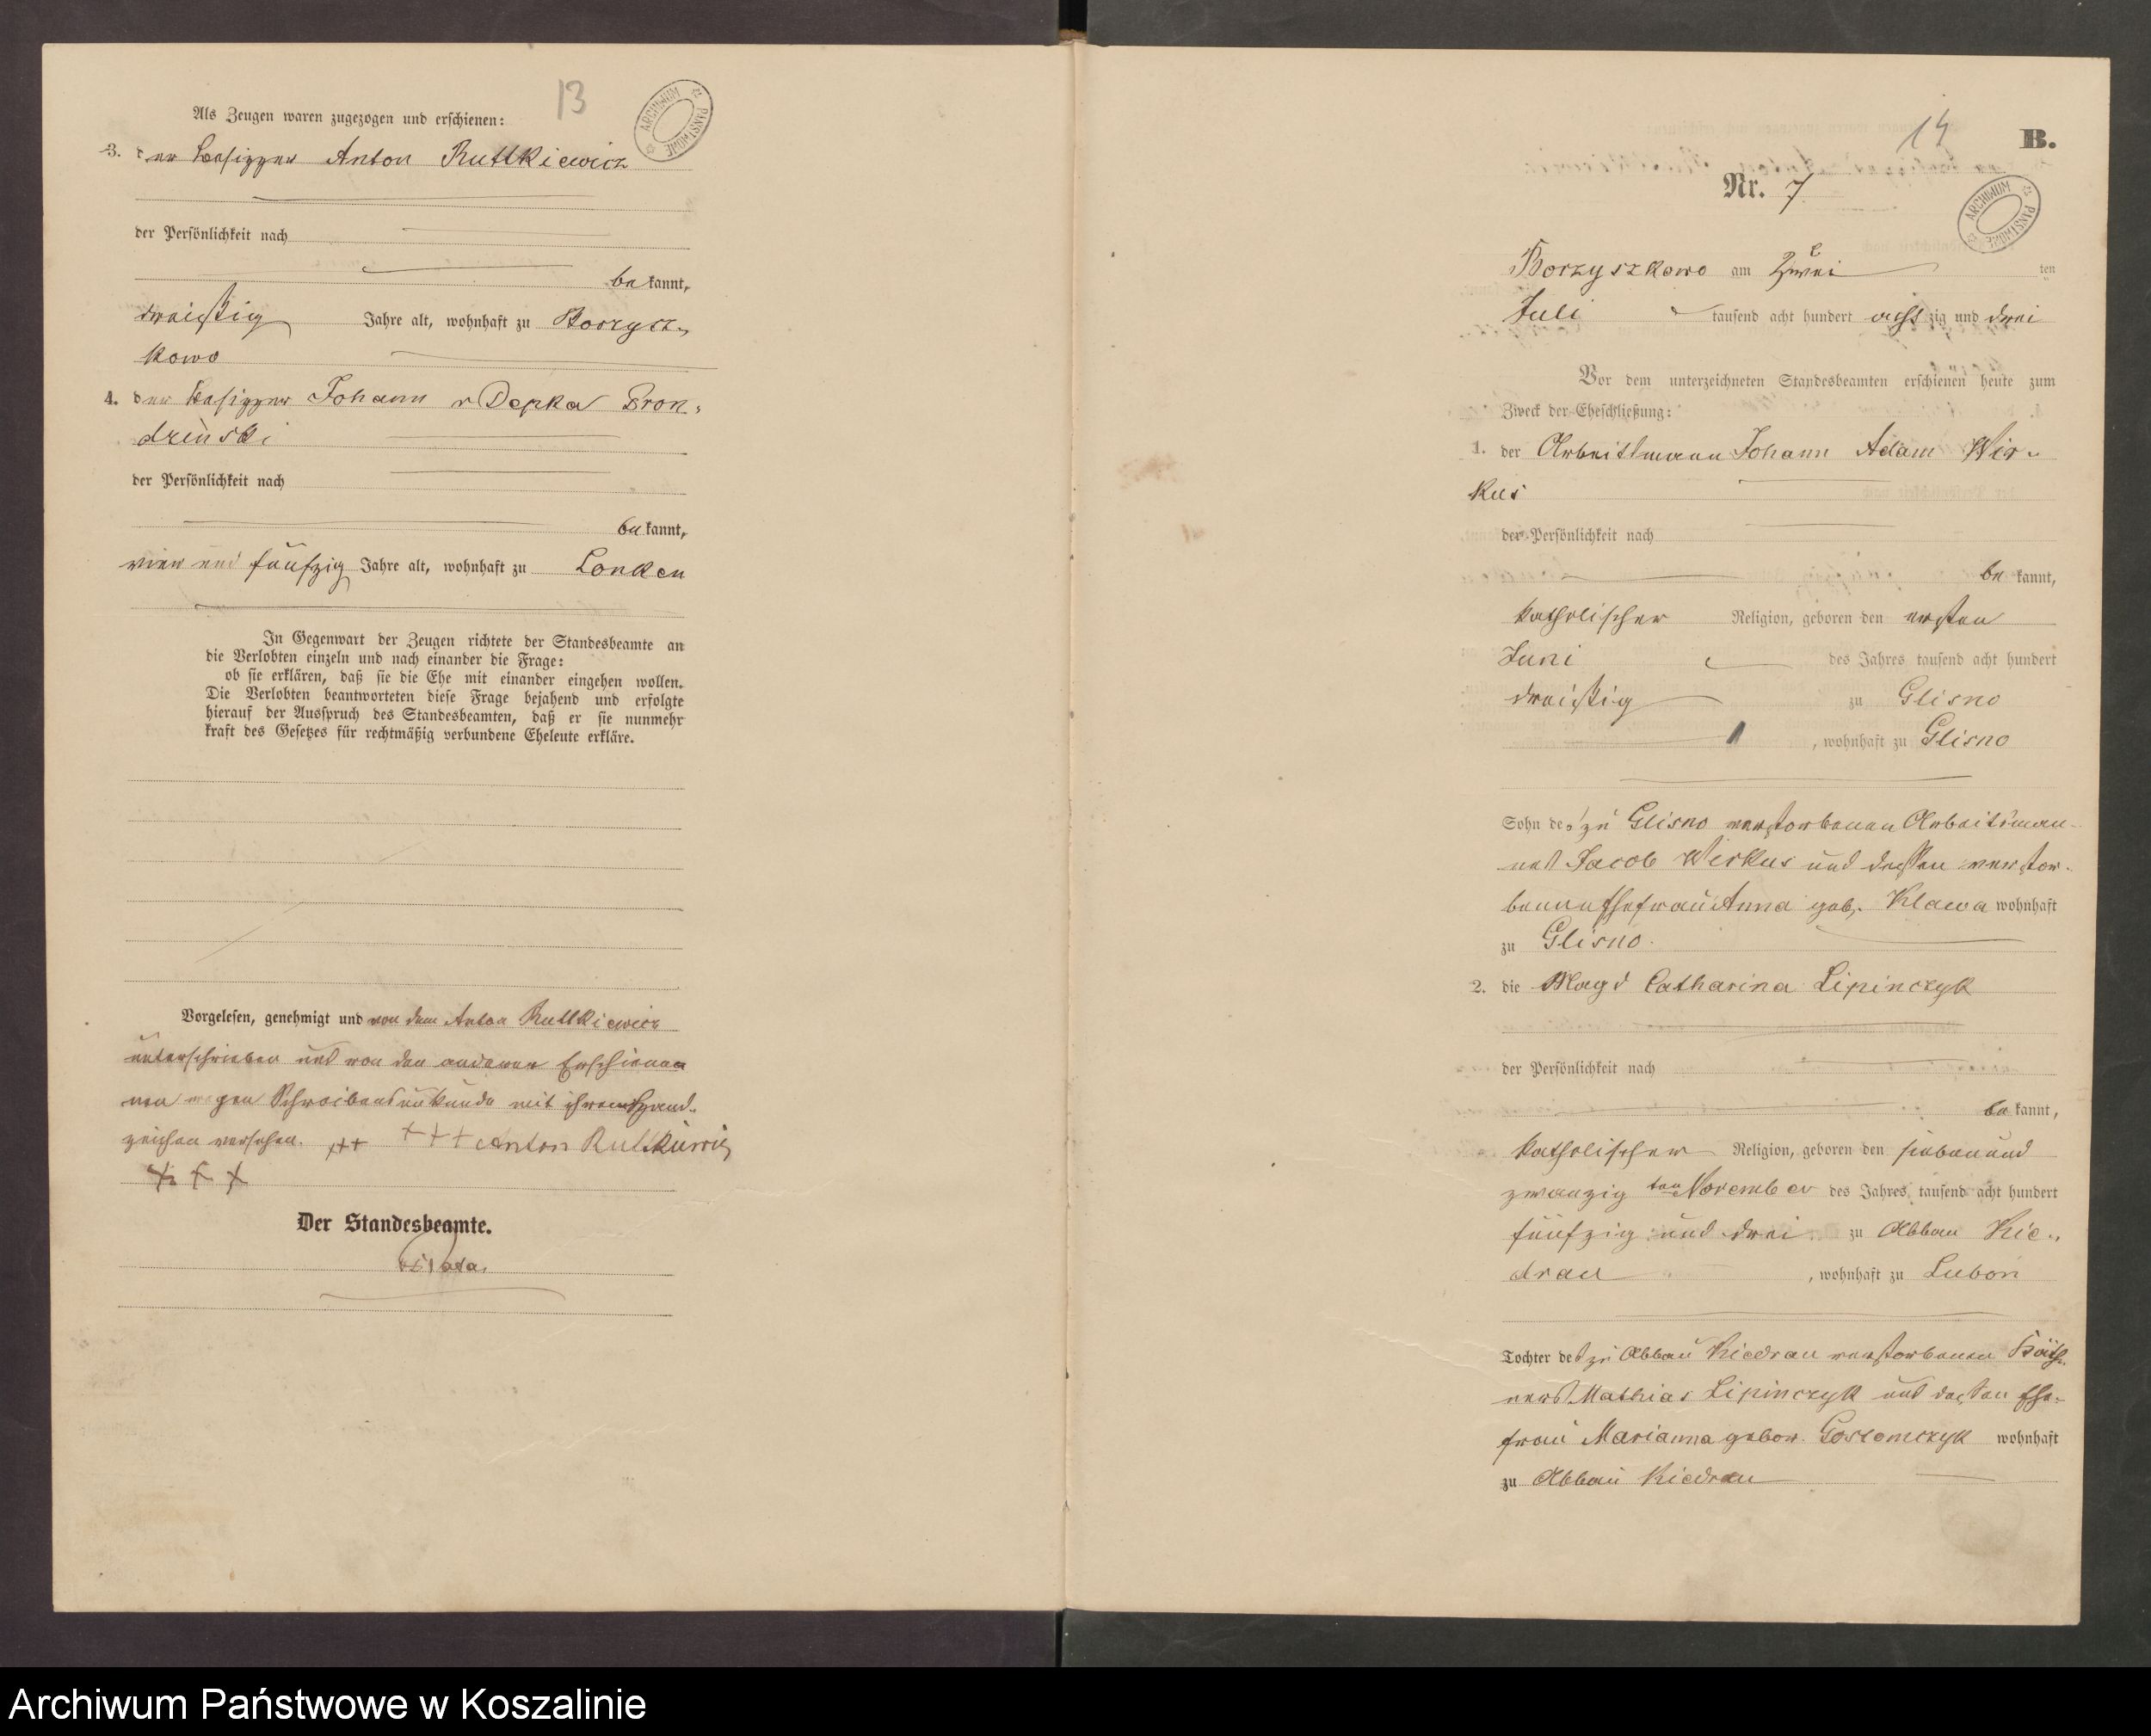 13
ARCHIWUM PAŃSTWOWE
Als Zeugen waren zugezogen und erschienen:
3. der Besitzer Anton Ruttkiewicz
der Persönlichkeit nach
be kannt,
dreißig Jahre alt, wohnhaft zu Borzysz-
kowo
4. der Besitzer Johann v Depka Pron-
dzinski
der Persönlichkeit nach
be kannt,
vier und fünfzig Jahre alt, wohnhaft zu Lonken
In Gegenwart der Zeugen richtete der Standesbeamte an
die Verlobten einzeln und nach einander die Frage:
ob sie erklären, daß sie die Ehe mit einander eingehen wollen.
Die Verlobten beantworteten diese Frage bejahend und erfolgte
hierauf der Ausspruch des Standesbeamten, daß er sie nunmehr
kraft des Gesetzes für rechtmäßig verbundene Eheleute erkläre.
Vorgelesen, genehmigt und von dem Anton Ruttkiewicz
unterschrieben und von den anderen Erschiene-
nen wegen Schreibensunkunde mit ihrem Hand-
zeichen versehen. +++ +++ Anton Rutkiewicz
+++
Der Standesbeamte.
14
B.
Nr. 7
ARCHIWUM PAŃSTWOWE
Borzyszkowo am Zwei ten
Juli tausend acht hundert acht zig und drei
Vor dem unterzeichneten Standesbeamten erschienen heute zum
Zweck der Eheschließung:
1. der Arbeitsmann Johann Adam Wir-
kus
der Persönlichkeit nach
be kannt,
katholischer Religion, geboren den ersten
Juni des Jahres tausend acht hundert
dreißig zu Glisno
, wohnhaft zu Glisno
Sohn des zu Glisno verstorbenen Arbeitsman-
nes Jacob Wirkus und dessen verstor-
benen Ehefrau Anna geb. Klawa wohnhaft
zu Glisno.
2. die Magd Catharina Lipinczyk
der Persönlichkeit nach
be kannt,
katholischer Religion, geboren den sieben und
zwanzig ten November des Jahres tausend acht hundert
fünfzig und drei zu Abbau Kie-
drau , wohnhaft zu Lubon
Tochter des zu Abbau Kiedrau verstorbenen Käth-
ners Mathias Lipinczyk und dessen Ehe-
frau Marianna gebor. Gostomczyk wohnhaft
zu Abbau Kiedrau
Archiwum Państwowe w Koszalinie